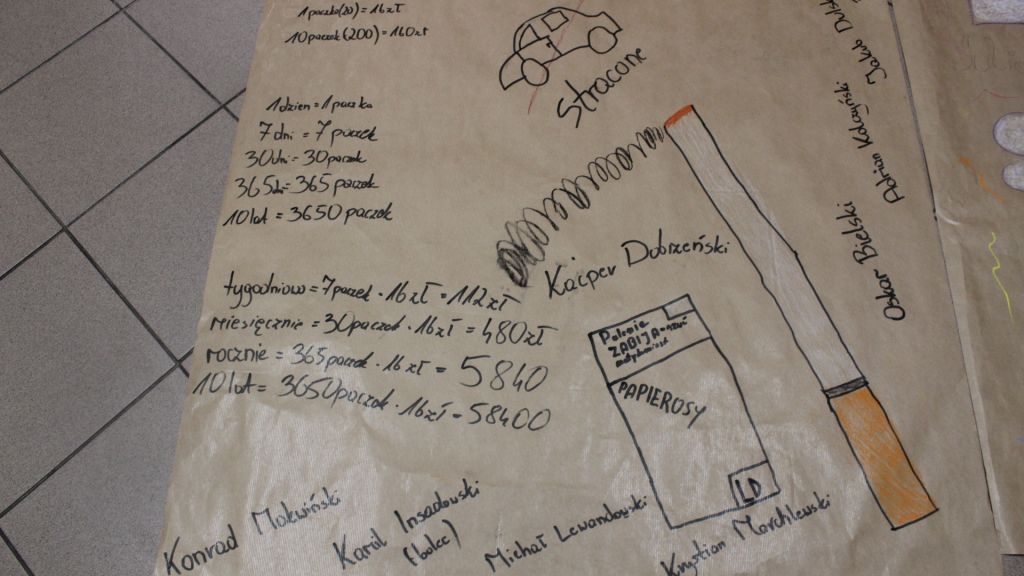 1 paczka(20) = 16 zł
10 paczek (200) = 160 zł
Stracone
1 dzien = 1 paczka
7 dni = 7 paczek
30 dni = 30 paczek
365 dni = 365 paczek
10 lat = 3650 paczek
tygodniowo = 7 paczek · 16 zł = 112 zł
miesięcznie = 30 paczek · 16 zł = 480 zł
rocznie = 365 paczek · 16 zł = 5840
10 lat = 3650 paczek · 16 zł = 58400
Kacper Dobrzeński
Palenie
ZABIJA
PAPIEROSY
LD
Konrad Mokwiński
Karol Insadowski
(bolec)
Michał Lewandowski
Krystian Marchlewski
Oskar Bielski
Adrian Kołczyński
Jakub